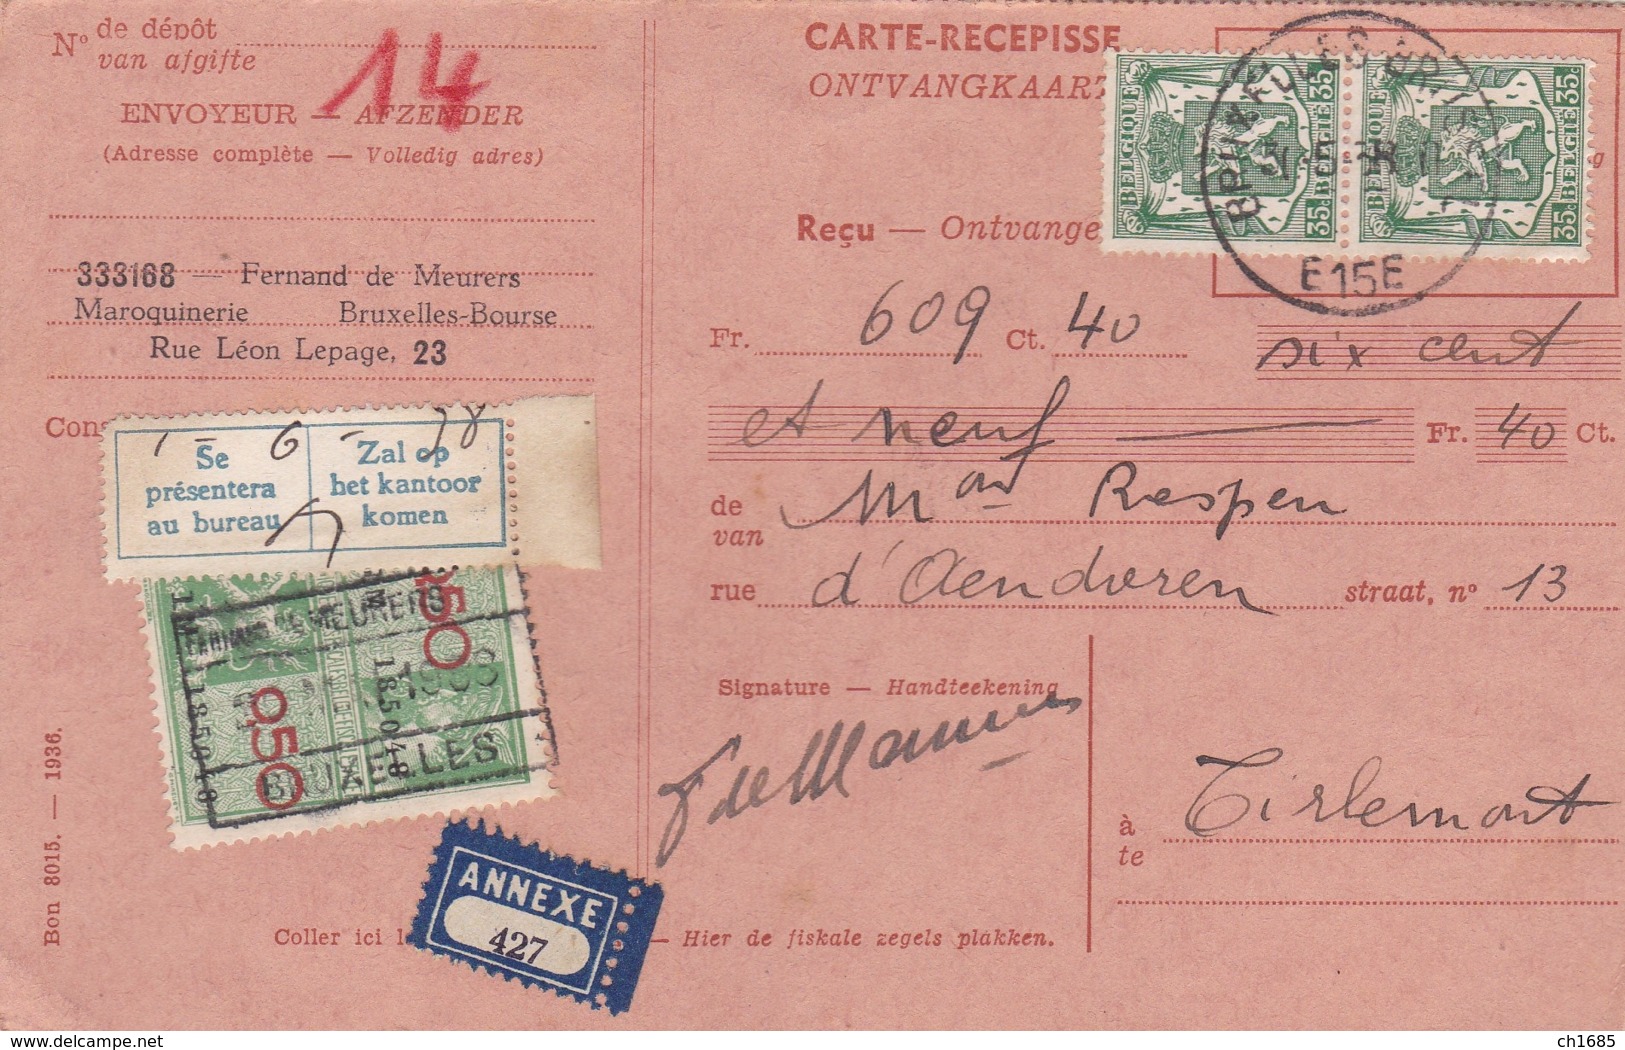 N° de dépôt
van afgifte
14
ENVOYEUR — AFZENDER
(Adresse complète — Volledig adres)
333168 — Fernand de Meurers
Maroquinerie Bruxelles-Bourse
Rue Léon Lepage, 23
Cons
1 - 6 - 38
Se présentera au bureau
Zal op het kantoor komen
0.50
0.50
DE MEURERS
1938
BRUXELLES
1M 185048
1M 185048
ANNEXE
427
Coller ici l
— Hier de fiskale zegels plakken.
Bon 8015. — 1936.
CARTE-RECEPISSE
ONTVANGKAART
BELGIQUE 35 BELGIË 35
BELGIQUE 35 BELGIË 35
BRUXELLES
E15E
Reçu — Ontvange
Fr. 609 Ct. 40 six cent
et neuf — Fr. 40 Ct.
de
van
Raspen
rue d'Oendoren straat, n° 13
Signature — Handteekening
à
te
Tirlemont
ch1685